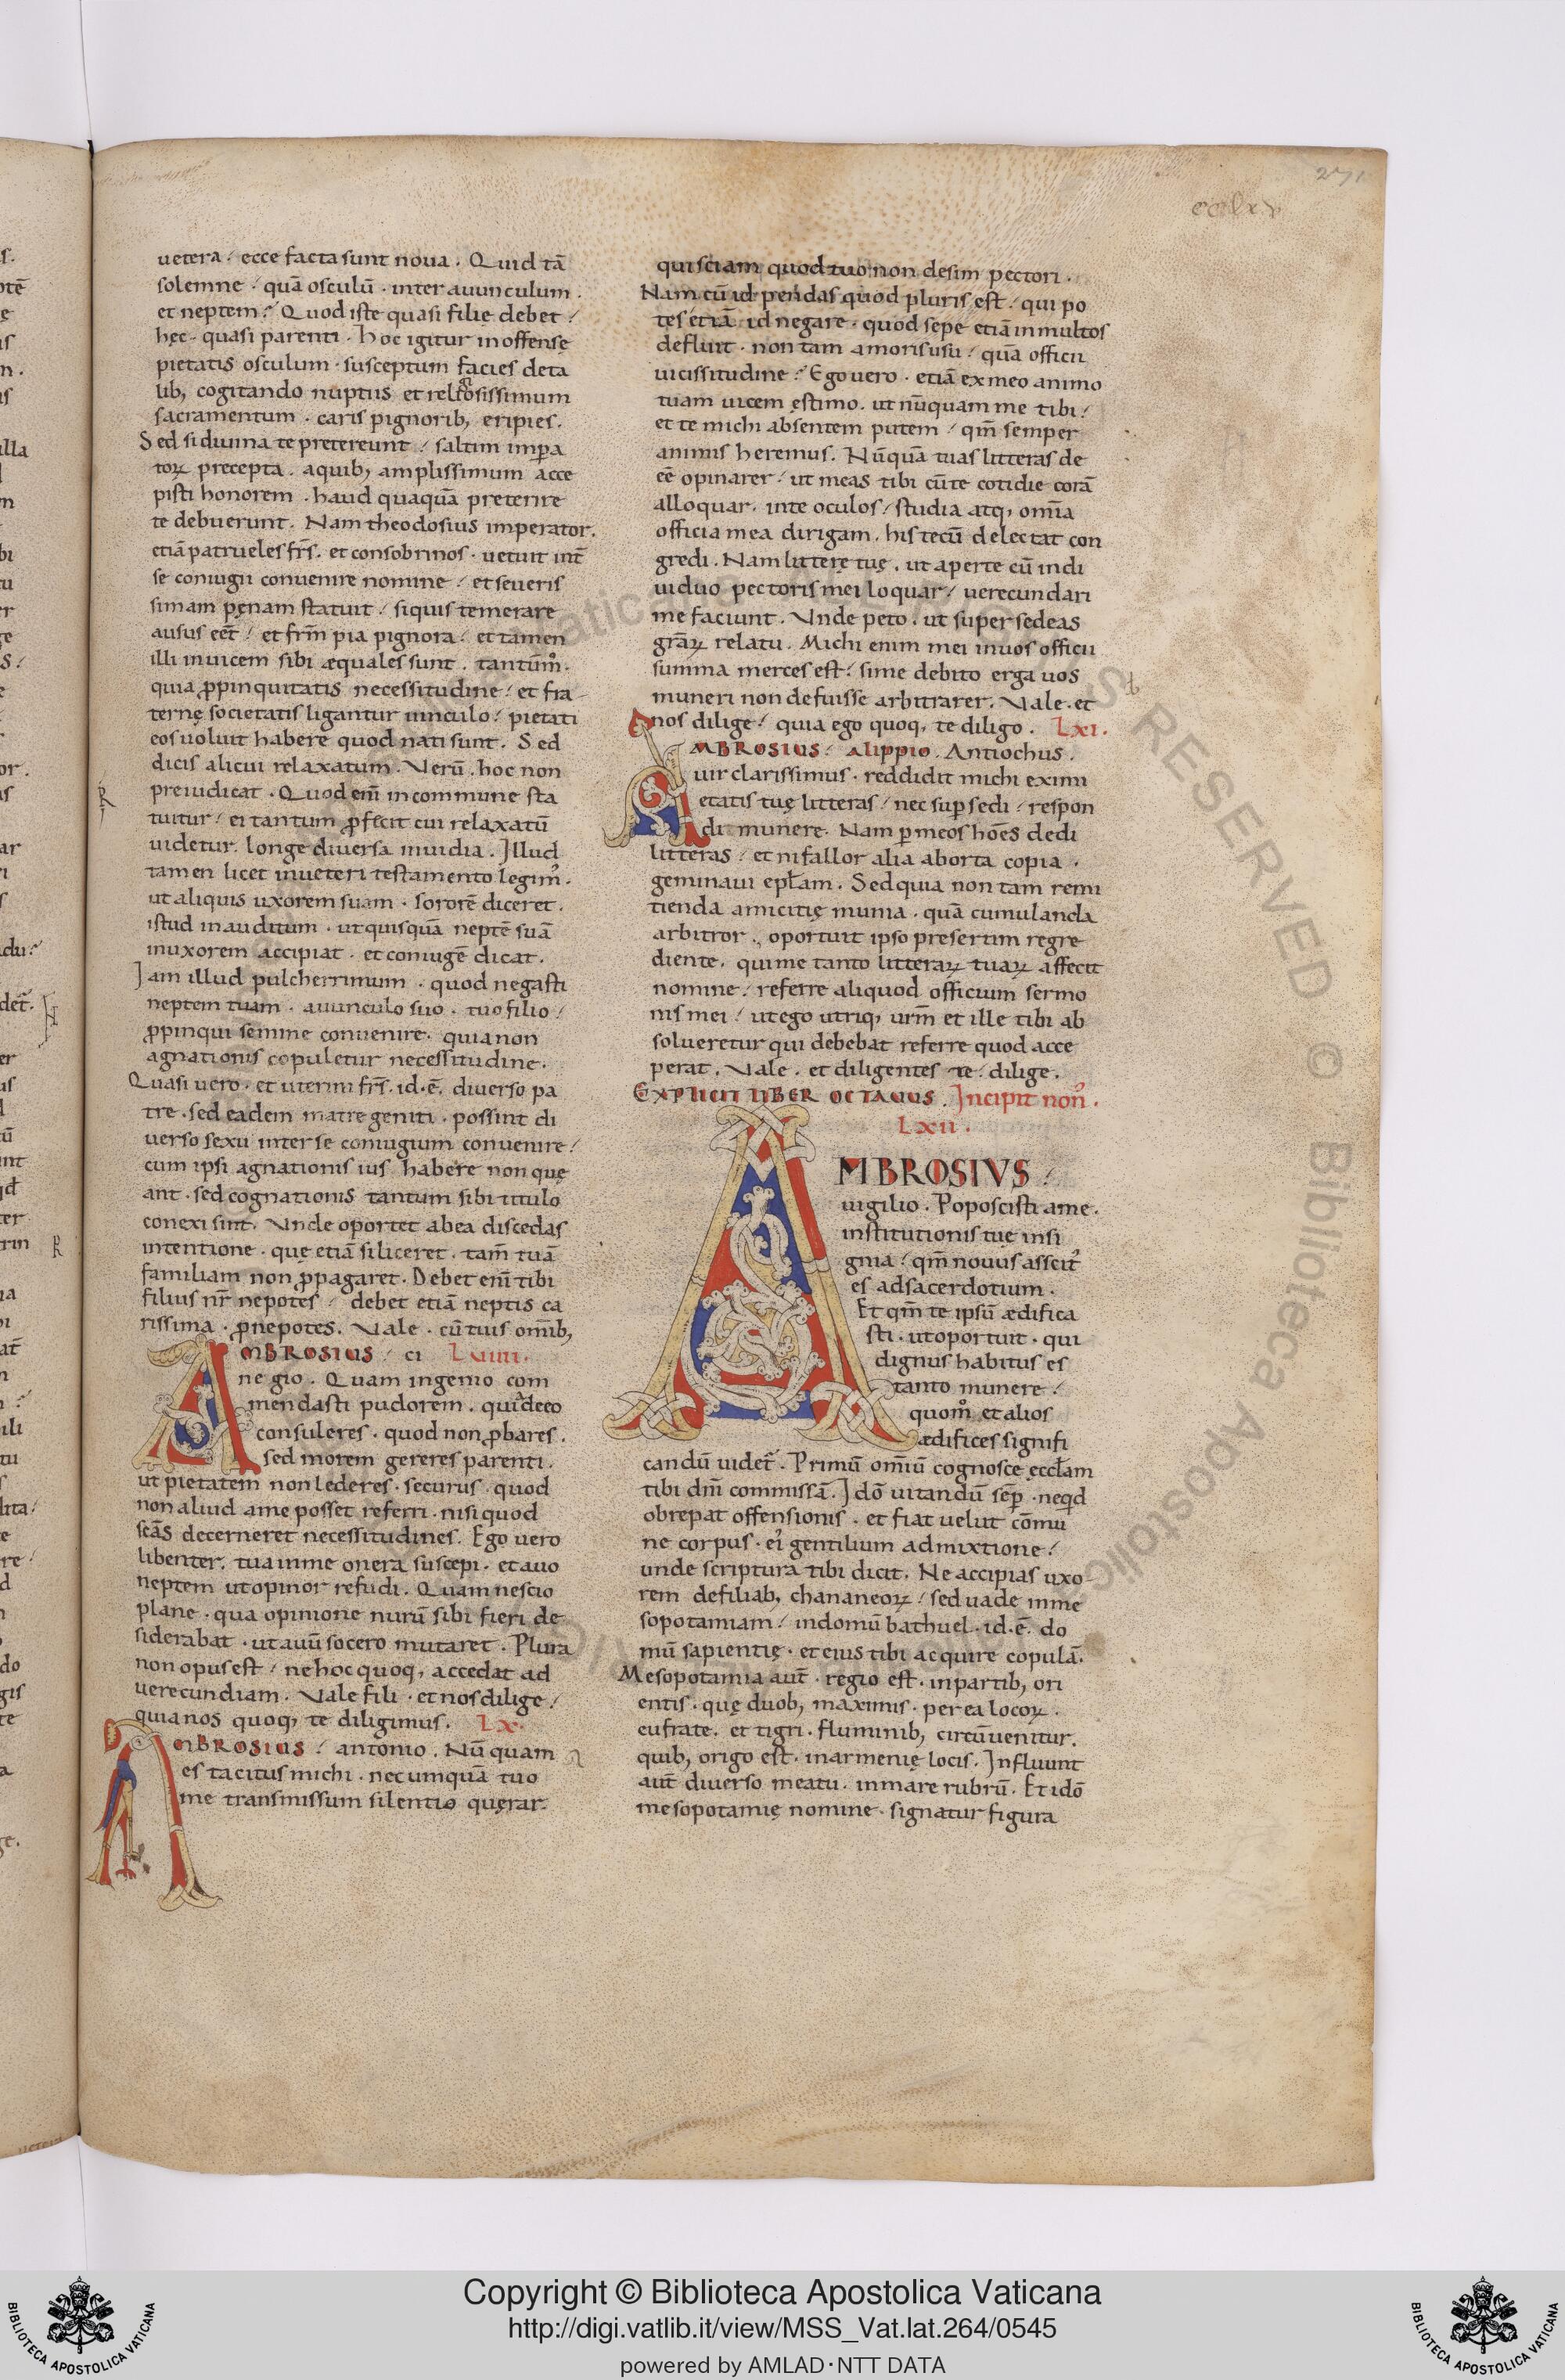 271
cclxv
uetera / ecce facta sunt noua . Quid tā
solemne / quā osculū . inter auunculum .
et neptem / Quod iste quasi filię debet /
hęc . quasi parenti . Hoc igitur inoffensę
pietatis osculum . susceptum facies deta
lib; cogitando nuptiis et religiosissimum
sacramentum . caris pignorib; eripies .
Sed si diuina te pretereunt / saltim imꝑa
toꝝ precepta . aquib; amplissimum acce
pisti honorem . haud quaquā preterire
te debuerunt . Nam theodosius imperator .
etiā patrueles fr̄s . et consobrinos . uetuit int̄
se coniugii conuenire nomine / et seueris
simam pęnam statuit / siquis temerare
ausus eēt / et fr̄m pia pignora / et tamen
illi inuicem sibi æquales sunt . tantūmͦ .
quia ꝓpinquitatis necessitudine / et fra
ternę societatis ligantur uinculo / pietati
eos uoluit habere quod nati sunt . Sed
dicis alicui relaxatum . Verū . hoc non
preiudicat . Quod eni̅ in commune sta
tuitur / ei tantum ꝓfecit cui relaxatū
uidetur . longe diuersa inuidia . Illud
tamen licet inueteri testamento legim᾽ .
ut aliquis uxorem suam . sororē diceret .
istud inauditum . ut quisquā neptē suā
inuxorem accipiat . et coniugē dicat .
Iam illud pulcherrimum . quod negasti
neptem tuam . auunculo suo . tuo filio /
ꝓpinqui semine conuenire . quia non
agnationis copuletur necessitudine .
Quasi uero . et uterini fr̄s . id . ē . diuerso pa
tre . sed eadem matre geniti . possint di
uerso sexu inter se coniugium conuenire /
cum ipsi agnationis ius habere non que
ant . sed cognationis tantum sibi titulo
conexi sint . Vnde oportet abea discedas
intentione . quę etiā si liceret . tam̄ tuā
familiam non ꝓpagaret . Debet eni̅ tibi
filius nr̄ nepotes / debet etiā neptis ca
rissima . ꝓnepotes . Vale . cū tuis omīb;
AMBROSIUS / ci Lviiii .
ne gio . Quam ingenio com
mendasti pudorem . qui de eo
consuleres . quod non ꝓbares .
sed morem gereres parenti .
ut pietatem non lederes . securus . quod
non aliud ame posset referri . nisi quod
sc̄as decerneret necessitudines . Ego uero
libenter . tua inme onera suscepi . et auo
neptem ut opinor refudi . Quam nescio
plane . qua opinione nurū sibi fieri de
siderabat . ut auū socero mutaret . Plura
non opus est / ne hoc quoq; accedat ad
uerecundiam . Vale fili . et nos dilige /
quia nos quoq; te diligimus . Lx .
AMBROSIUS / antonio . Nū quam
es tacitus michi . nec umquā tuo
me transmissum silentio quęrar .
qui sciam quod tuo non desim pectori .
Nam cū id pendas quod pluris est / qui po
tes etiā id negare . quod sepe etiā in multos
defluit . non tam amoris usu / quā officii
uicissitudine / Ego uero . etiā ex meo animo
tuam uicem ęstimo . ut nūquam me tibi /
et te michi absentem putem / qm̄ semper
animis heremus . Nūquā tuas litteras de
eē opinarer / ut meas tibi cū te cotidie corā
alloquar . inte oculos / studia atq; om̄ia
officia mea dirigam . his tecū delectat con
gredi . Nam litterę tuę . ut aperte cū indi
uiduo pectoris mei loquar / uerecundari
me faciunt . Vnde peto . ut super sedeas
gr̄aꝝ relatu . Michi enim mei in uos officii
summa merces est / si me debito erga uos
muneri non defuisse arbitrarer . Vale . et
nos dilige / quia ego quoq; te diligo . Lxi .
AMBROSIUS / alippio . Antiochus .
uir clarissimus . reddidit michi eximi
etatis tuę litteras / nec suꝑ sedi / respon
di munere . Nam ꝑ meos hoēs dedi
litteras / et ni fallor alia aborta copia .
geminaui epl̄am . Sed quia non tam remi
tienda amicitię munia . quā cumulanda
arbitror . oportuit ipso presertim regre
diente . qui me tanto litteraꝝ tuaꝝ affecit
nomine / referre aliquod officium sermo
nis mei / ut ego utriq; ur̄m et ille tibi ab
solueretur qui debebat referre quod acce
perat . Vale . et diligentes te . dilige .
EXPLICIT LIBER OCTAVUS . Incipit non᾽ .
Lxii .
AMBROSIVS /
uigilio . Poposcisti ame .
institutionis tuę insi
gnia / qm̄ nouus asscit᾽
es ad sacerdotium .
Et qm̄ te ipsū ædifica
sti . ut oportuit . qui
dignus habitus es
tanto munere /
quomͦ et alios
ædifices signifi
candū uidet᾽ . Primū omīū cognosce ęccl̄am
tibi dn̄i commissā . Idō uitandū sēꝑ . neqͥd
obrepat offensionis . et fiat uelut cōmu
ne corpus . ei᾽ gentilium admixtione /
unde scriptura tibi dicit . Ne accipias uxo
rem defiliab; chananeoꝝ / sed uade inme
sopotamiam / indomū bathuel . id . ē . do
mū sapientię . et eius tibi acquire copulā .
Mesopotamia aut̄ . regio est . inpartib; ori
entis . quę duob; maximis . per ea locoꝝ .
eufrate . et tigri . fluminib; circūuenitur .
quib; origo est . in armenię locis . Influunt
aut̄ diuerso meatu . in mare rubrū . Et idō
mesopotamię nomine . signatur figura
Copyright © Biblioteca Apostolica Vaticana
http://digi.vatlib.it/view/MSS_Vat.lat.264/0545
powered by AMLAD·NTT DATA
BIBLIOTECA APOSTOLICA VATICANA
BIBLIOTECA APOSTOLICA VATICANA